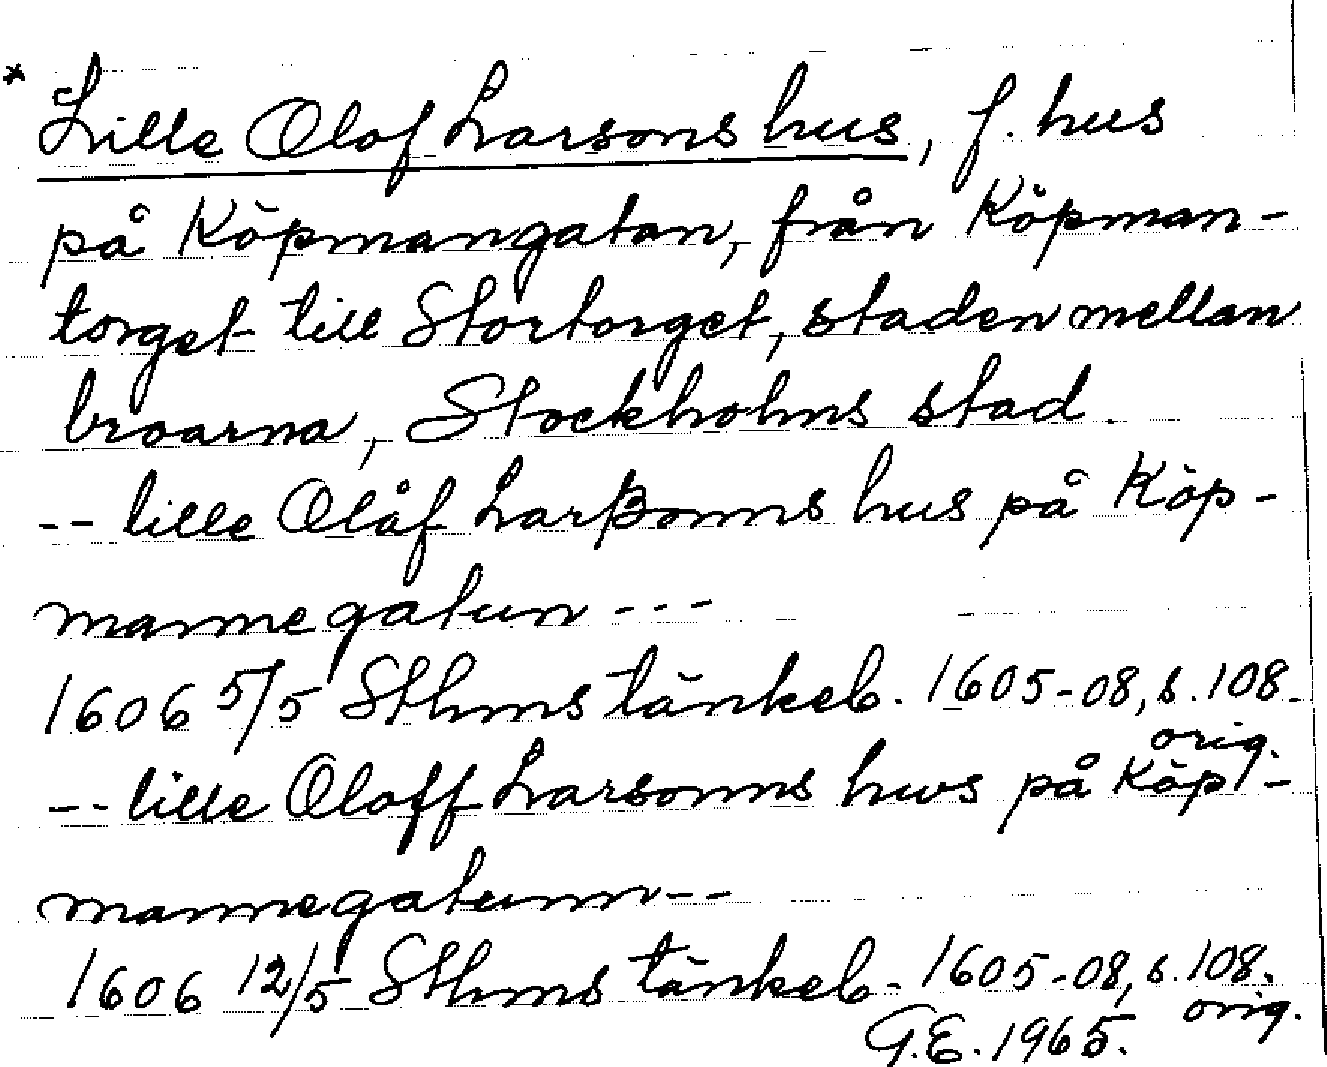 * Lille Olof Larsons hus, f. hus
på Köpmangatan, från Köpman-
torget till Stortorget, staden mellan
broarna, Stockholms stad.
-- lille Olåf Larßonns hus på Köp-
mannegatun ---
1606 5/5 Sthms tänkeb. 1605-08, s. 108.
orig.
-- lille Oloff Larsonns hws på Köp-
mannegatunn --
1606 12/5 Sthms tänkeb. 1605-08, s. 108.
orig.
G.E. 1965.